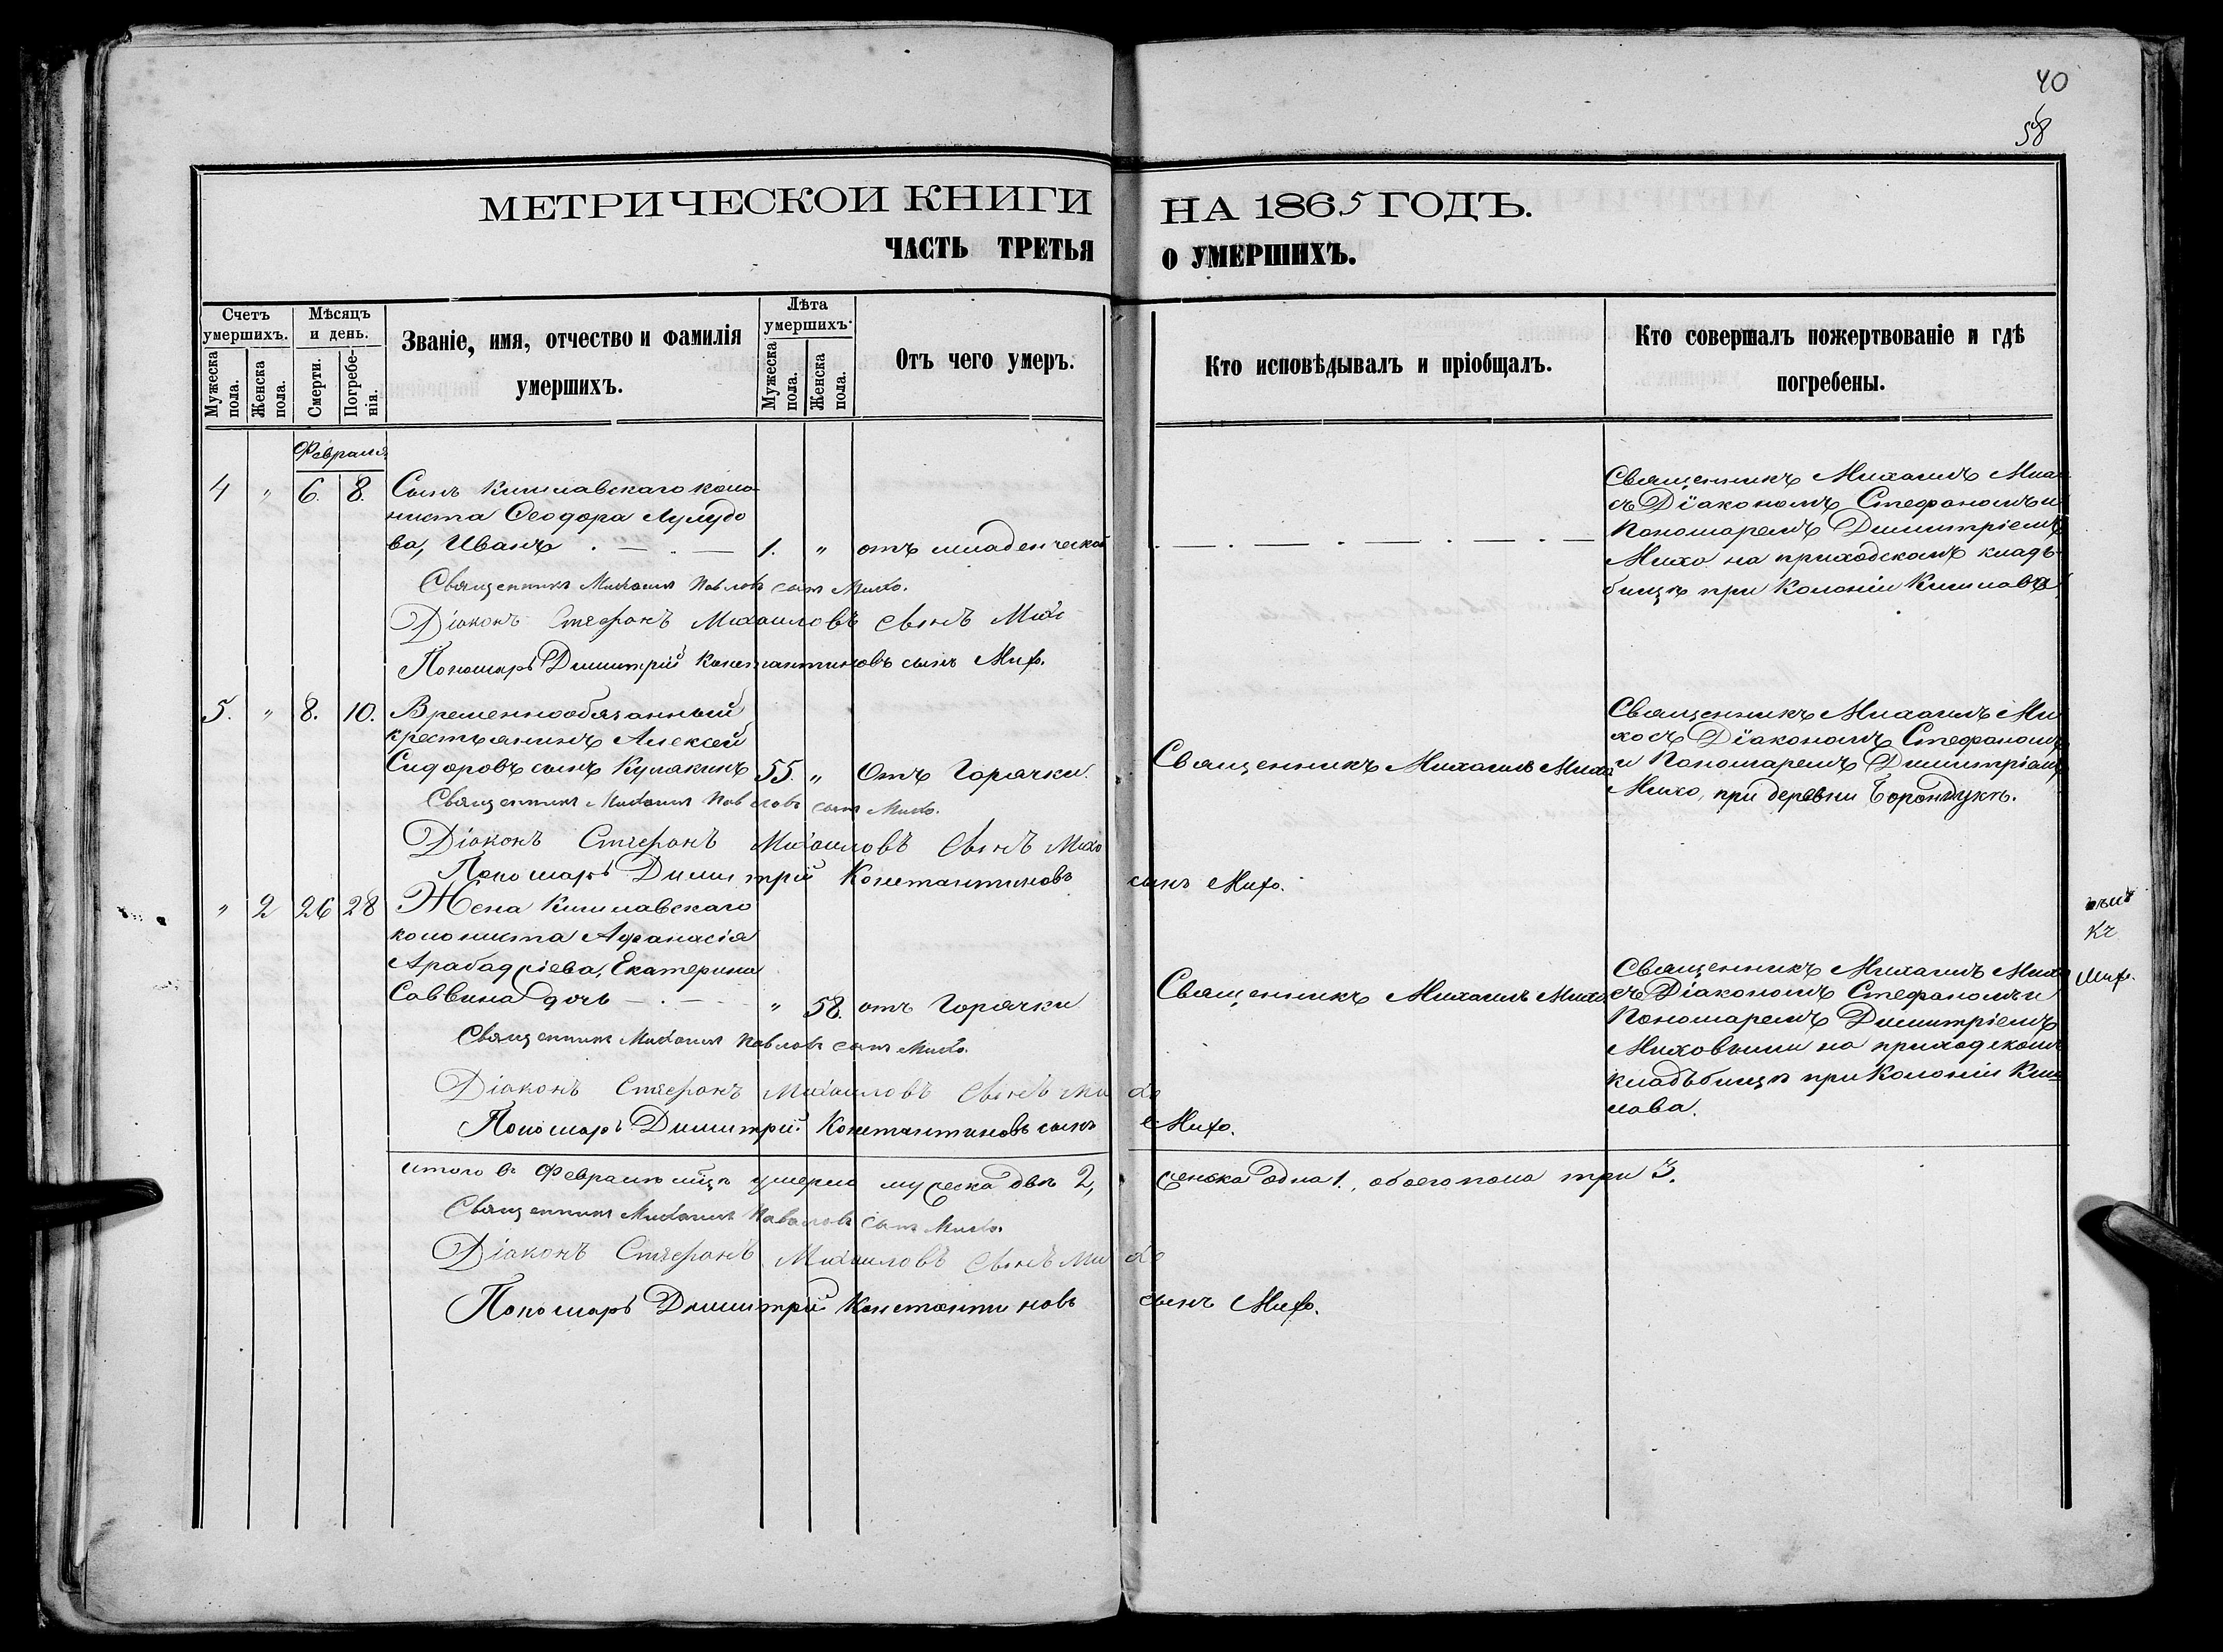 40
58
МЕТРИЧЕСКОЙ КНИГИ НА 1865 ГОДЪ.
ЧАСТЬ ТРЕТЬЯ О УМЕРШИХЪ.
Счетъ умершихъ.
Мужеска пола.
Женска пола.
Мѣсяцъ и день.
Смерти.
Погребенія.
Званіе, имя, отчество и фамилія умершихъ.
Лѣта умершихъ.
Мужеска пола.
Женска пола.
Отъ чего умеръ.
Кто исповѣдывалъ и пріобщалъ.
Кто совершалъ пожертвованіе и гдѣ погребены.
Февраля
4 " 6. 8. Сынъ Кишлавскаго коло-
ниста Ѳеодора Лулудо
ва, Иванъ 1. " отъ младенческой
Священникъ Михаилъ Михо
съ Діакономъ Стефаномъ и
Пономаремъ Димитріемъ
Михо на приходскомъ кладъ-
бищѣ при Колоніи Кишлавъ
Священникъ Михаилъ Павловъ сынъ Михо.
Діаконъ Стефанъ Михаиловъ сынъ Михо
Пономарь Димитрій Константиновъ сынъ Михо.
5. " 8. 10. Временнообязанный
крестьянинъ Алексей
Сидоровъ сынъ Кулакинъ 55. " Отъ Горячки.
Священникъ Михаилъ Михо
Священникъ Михаилъ Ми
хо съ Діакономъ Стефаномъ
и Пономаремъ Димитріемъ
Михо, при деревни Борондукъ.
Священникъ Михаилъ Павловъ сынъ Михо.
Діаконъ Стефанъ Михаиловъ сынъ Михо
Пономарь Димитрій Константиновъ сынъ Михо.
" 2 26 28 Жена Кишлавскаго
колониста Афанасія
Арабаджіева, Екатерина
Саввина дочь " 58. отъ Горячки
Священникъ Михаилъ Михо
Священникъ Михаилъ Михо
съ Діакономъ Стефаномъ и
Пономаремъ Димитріемъ
Миховыми на приходскомъ
кладъбищѣ при Колоніи Киш
лава.
Священникъ Михаилъ Павловъ сынъ Михо.
Діаконъ Стефанъ Михаиловъ сынъ Михо
Пономарь Димитрій Константиновъ сынъ Михо.
Итого въ Февралѣ мцѣ умерло мужеска двѣ 2, женска одна 1., обоего пола три 3.
Священникъ Михаилъ Павловъ сынъ Михо.
Діаконъ Стефанъ Михаиловъ сынъ Михо
Пономарь Димитрій Константиновъ сынъ Михо.